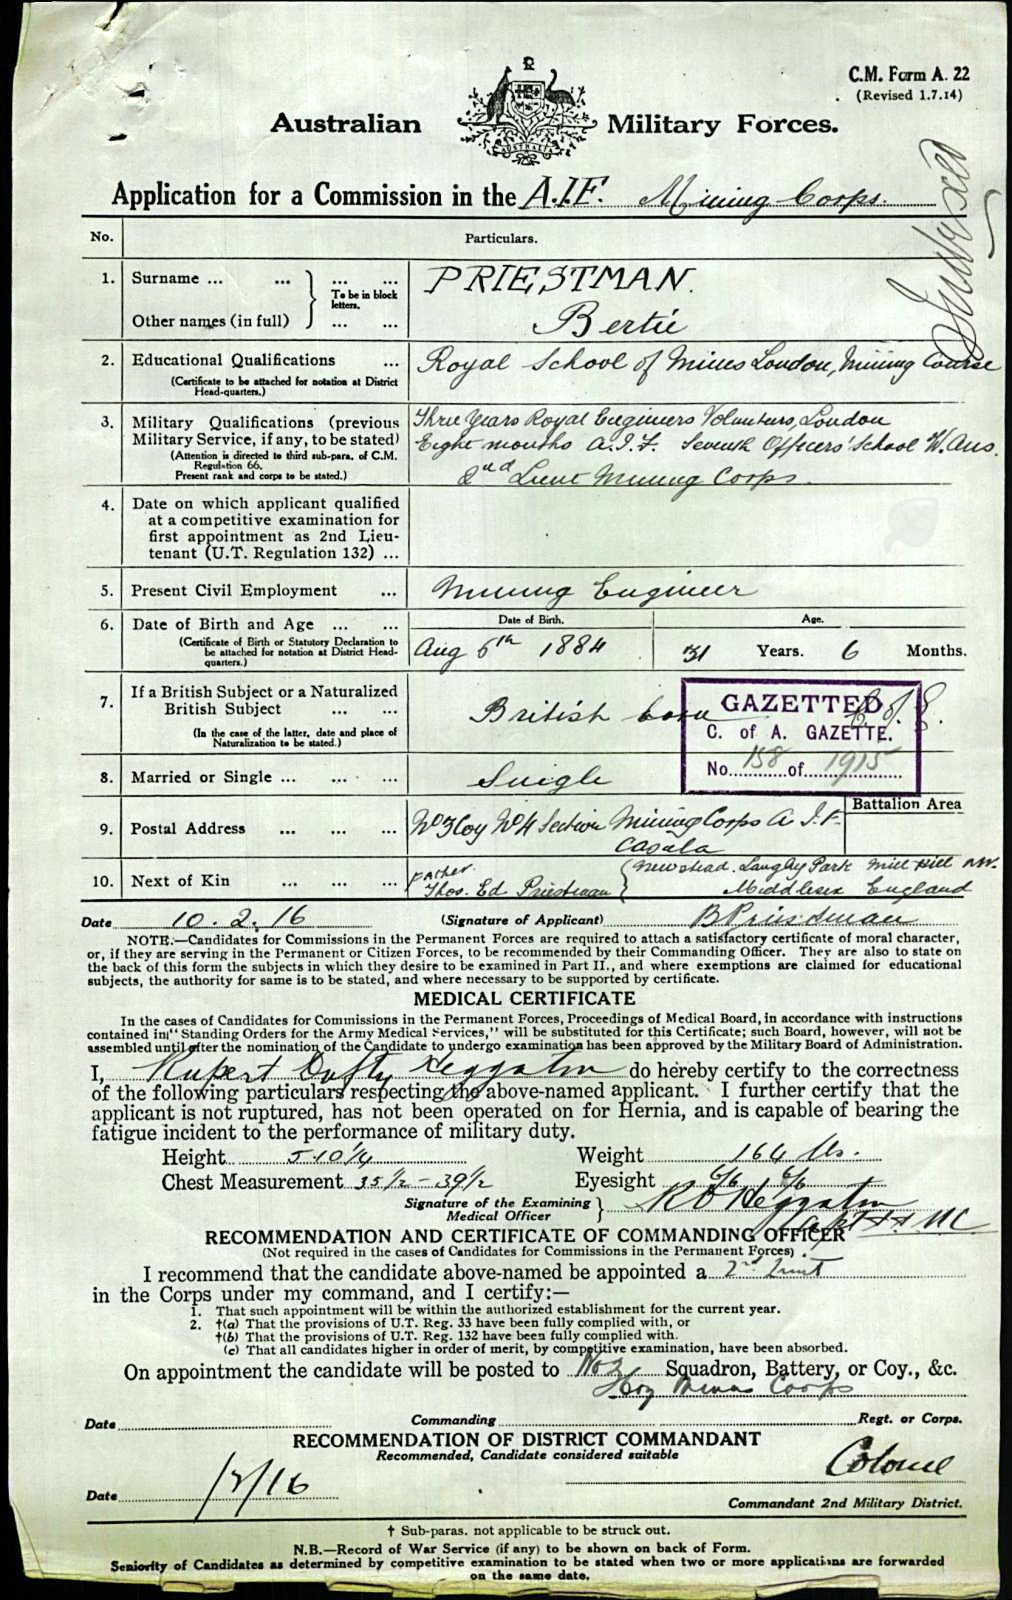 C.M. Form A. 22
(Revised 1.7.14)
Australian Military Forces.
AUSTRALIA
Application for a Commission in the A.I.F. Mining Corps.
Indexed
No. Particulars.
1. Surname ... ... } To be in block letters. ... ... PRIESTMAN.
Other names (in full) ... ... Bertie
2. Educational Qualifications ... Royal School of Mines London, Mining Course
(Certificate to be attached for notation at District Head-quarters.)
3. Military Qualifications (previous Three Years Royal Engineers Volunteers, London
Military Service, if any, to be stated) Eight months A.I.F. Seventh Officers' School W. Aus.
(Attention is directed to third sub-para. of C.M. Regulation 66.
Present rank and corps to be stated.) 2nd Lieut Mining Corps.
4. Date on which applicant qualified
at a competitive examination for
first appointment as 2nd Lieu-
tenant (U.T. Regulation 132) ...
5. Present Civil Employment ... Mining Engineer
6. Date of Birth and Age ... ... Date of Birth. Age.
(Certificate of Birth or Statutory Declaration to
be attached for notation at District Head-
quarters.)
Aug 6th 1884 31 Years. 6 Months.
7. If a British Subject or a Naturalized
British Subject ... ... British born
(In the case of the latter, date and place of
Naturalization to be stated.)
GAZETTED
C. of A. GAZETTE.
No. 158 of 1915
C. of E.
8. Married or Single ... ... ... Single
Battalion Area
9. Postal Address ... ... ... No 3 Coy No 4 Section Mining Corps A.I.F.
Casula
10. Next of Kin ... ... ... Father. Thos. Ed. Priestman { Newstead. Langley Park Mill Hill NW.
Middlesex England
Date 10.2.16 (Signature of Applicant) B Priestman
NOTE.—Candidates for Commissions in the Permanent Forces are required to attach a satisfactory certificate of moral character,
or, if they are serving in the Permanent or Citizen Forces, to be recommended by their Commanding Officer. They are also to state on
the back of this form the subjects in which they desire to be examined in Part II., and where exemptions are claimed for educational
subjects, the authority for same is to be stated, and where necessary to be supported by certificate.
MEDICAL CERTIFICATE
In the cases of Candidates for Commissions in the Permanent Forces, Proceedings of Medical Board, in accordance with instructions
contained in "Standing Orders for the Army Medical Services," will be substituted for this Certificate; such Board, however, will not be
assembled until after the nomination of the Candidate to undergo examination has been approved by the Military Board of Administration.
I, Rupert Dufty Heggaton do hereby certify to the correctness
of the following particulars respecting the above-named applicant. I further certify that the
applicant is not ruptured, has not been operated on for Hernia, and is capable of bearing the
fatigue incident to the performance of military duty.
Height 5 10 1/4 Weight 164 lbs.
Chest Measurement 35 1/2 - 39 1/2 Eyesight 6/6 6/6
Signature of the Examining Medical Officer } R D Heggaton
Capt AAMC
RECOMMENDATION AND CERTIFICATE OF COMMANDING OFFICER
(Not required in the cases of Candidates for Commissions in the Permanent Forces)
I recommend that the candidate above-named be appointed a 2nd Lieut
in the Corps under my command, and I certify:—
1. That such appointment will be within the authorized establishment for the current year.
2. †(a) That the provisions of U.T. Reg. 33 have been fully complied with, or
†(b) That the provisions of U.T. Reg. 132 have been fully complied with.
(c) That all candidates higher in order of merit, by competitive examination, have been absorbed.
On appointment the candidate will be posted to No 3 Squadron, Battery, or Coy., &c.
Coy Corps
Date Commanding Regt. or Corps.
RECOMMENDATION OF DISTRICT COMMANDANT
Recommended, Candidate considered suitable
Colonel
Date /2/16
Commandant 2nd Military District.
† Sub-paras. not applicable to be struck out.
N.B.—Record of War Service (if any) to be shown on back of Form.
Seniority of Candidates as determined by competitive examination to be stated when two or more applications are forwarded
on the same date.